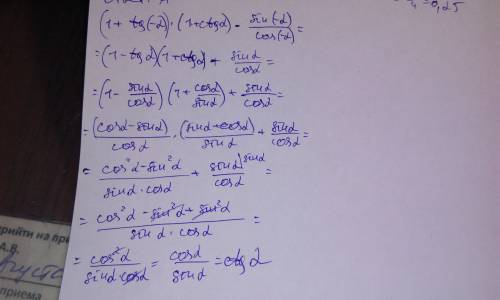 (1 + tg(-α)) · (1 + ctgα) - sin(-α)/cos(-α) =
= (1 - tgα)(1 + ctgα) + sinα/cosα =
= (1 - sinα/cosα) (1 + cosα/sinα) + sinα/cosα =
= (cosα - sinα)/cosα · (sinα + cosα)/sinα + sinα/cosα =
= cos²α - sin²α/sinα · cosα + sinα/cosα sinα =
= cos²α - sin²α + sin²α/sinα · cosα =
= cos²α/sinα cosα = cosα/sinα = ctgα
прийти на при
А.В.
приема